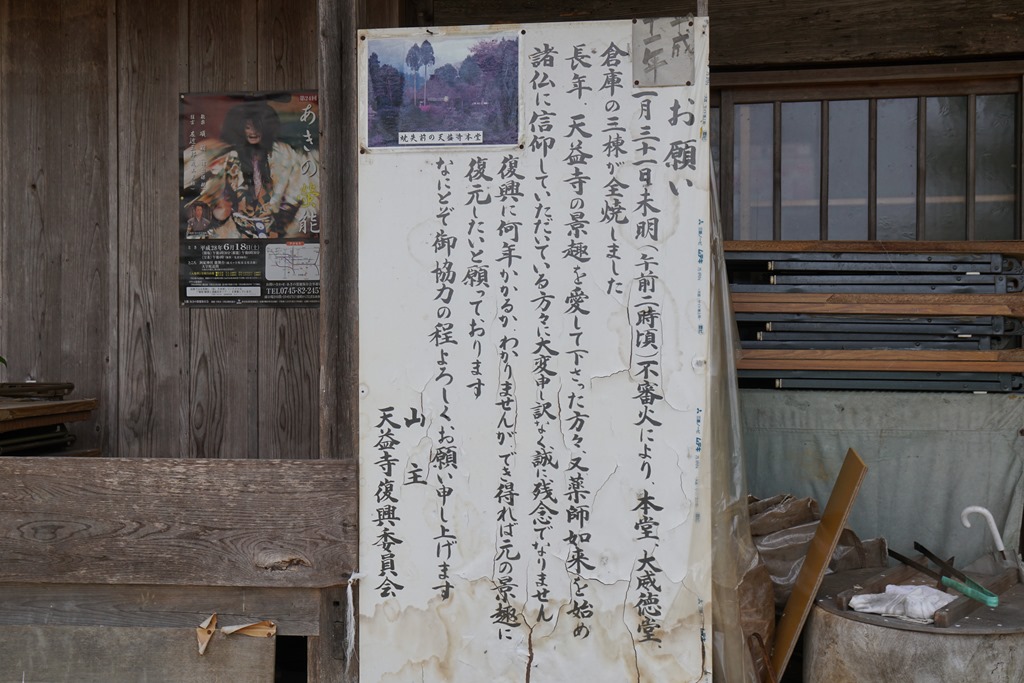 お願い
平成
十一年
一月三十一日未明（午前二時頃）不審火により、本堂、大威徳堂、
倉庫の三棟が全焼しました
長年、天益寺の景趣を愛して下さった方々、又薬師如来を始め
諸仏に信仰していただいている方々に大変申し訳なく誠に残念でなりません
復興に何年かかるか、わかりませんが、でき得れば元の景趣に
復元したいと願っております
なにとぞ御協力の程よろしく、お願い申し上げます
山主
天益寺復興委員会
焼失前の天益寺本堂
第24回
あきの蛍能
平成28年6月18日(土)
TEL0745-82-245